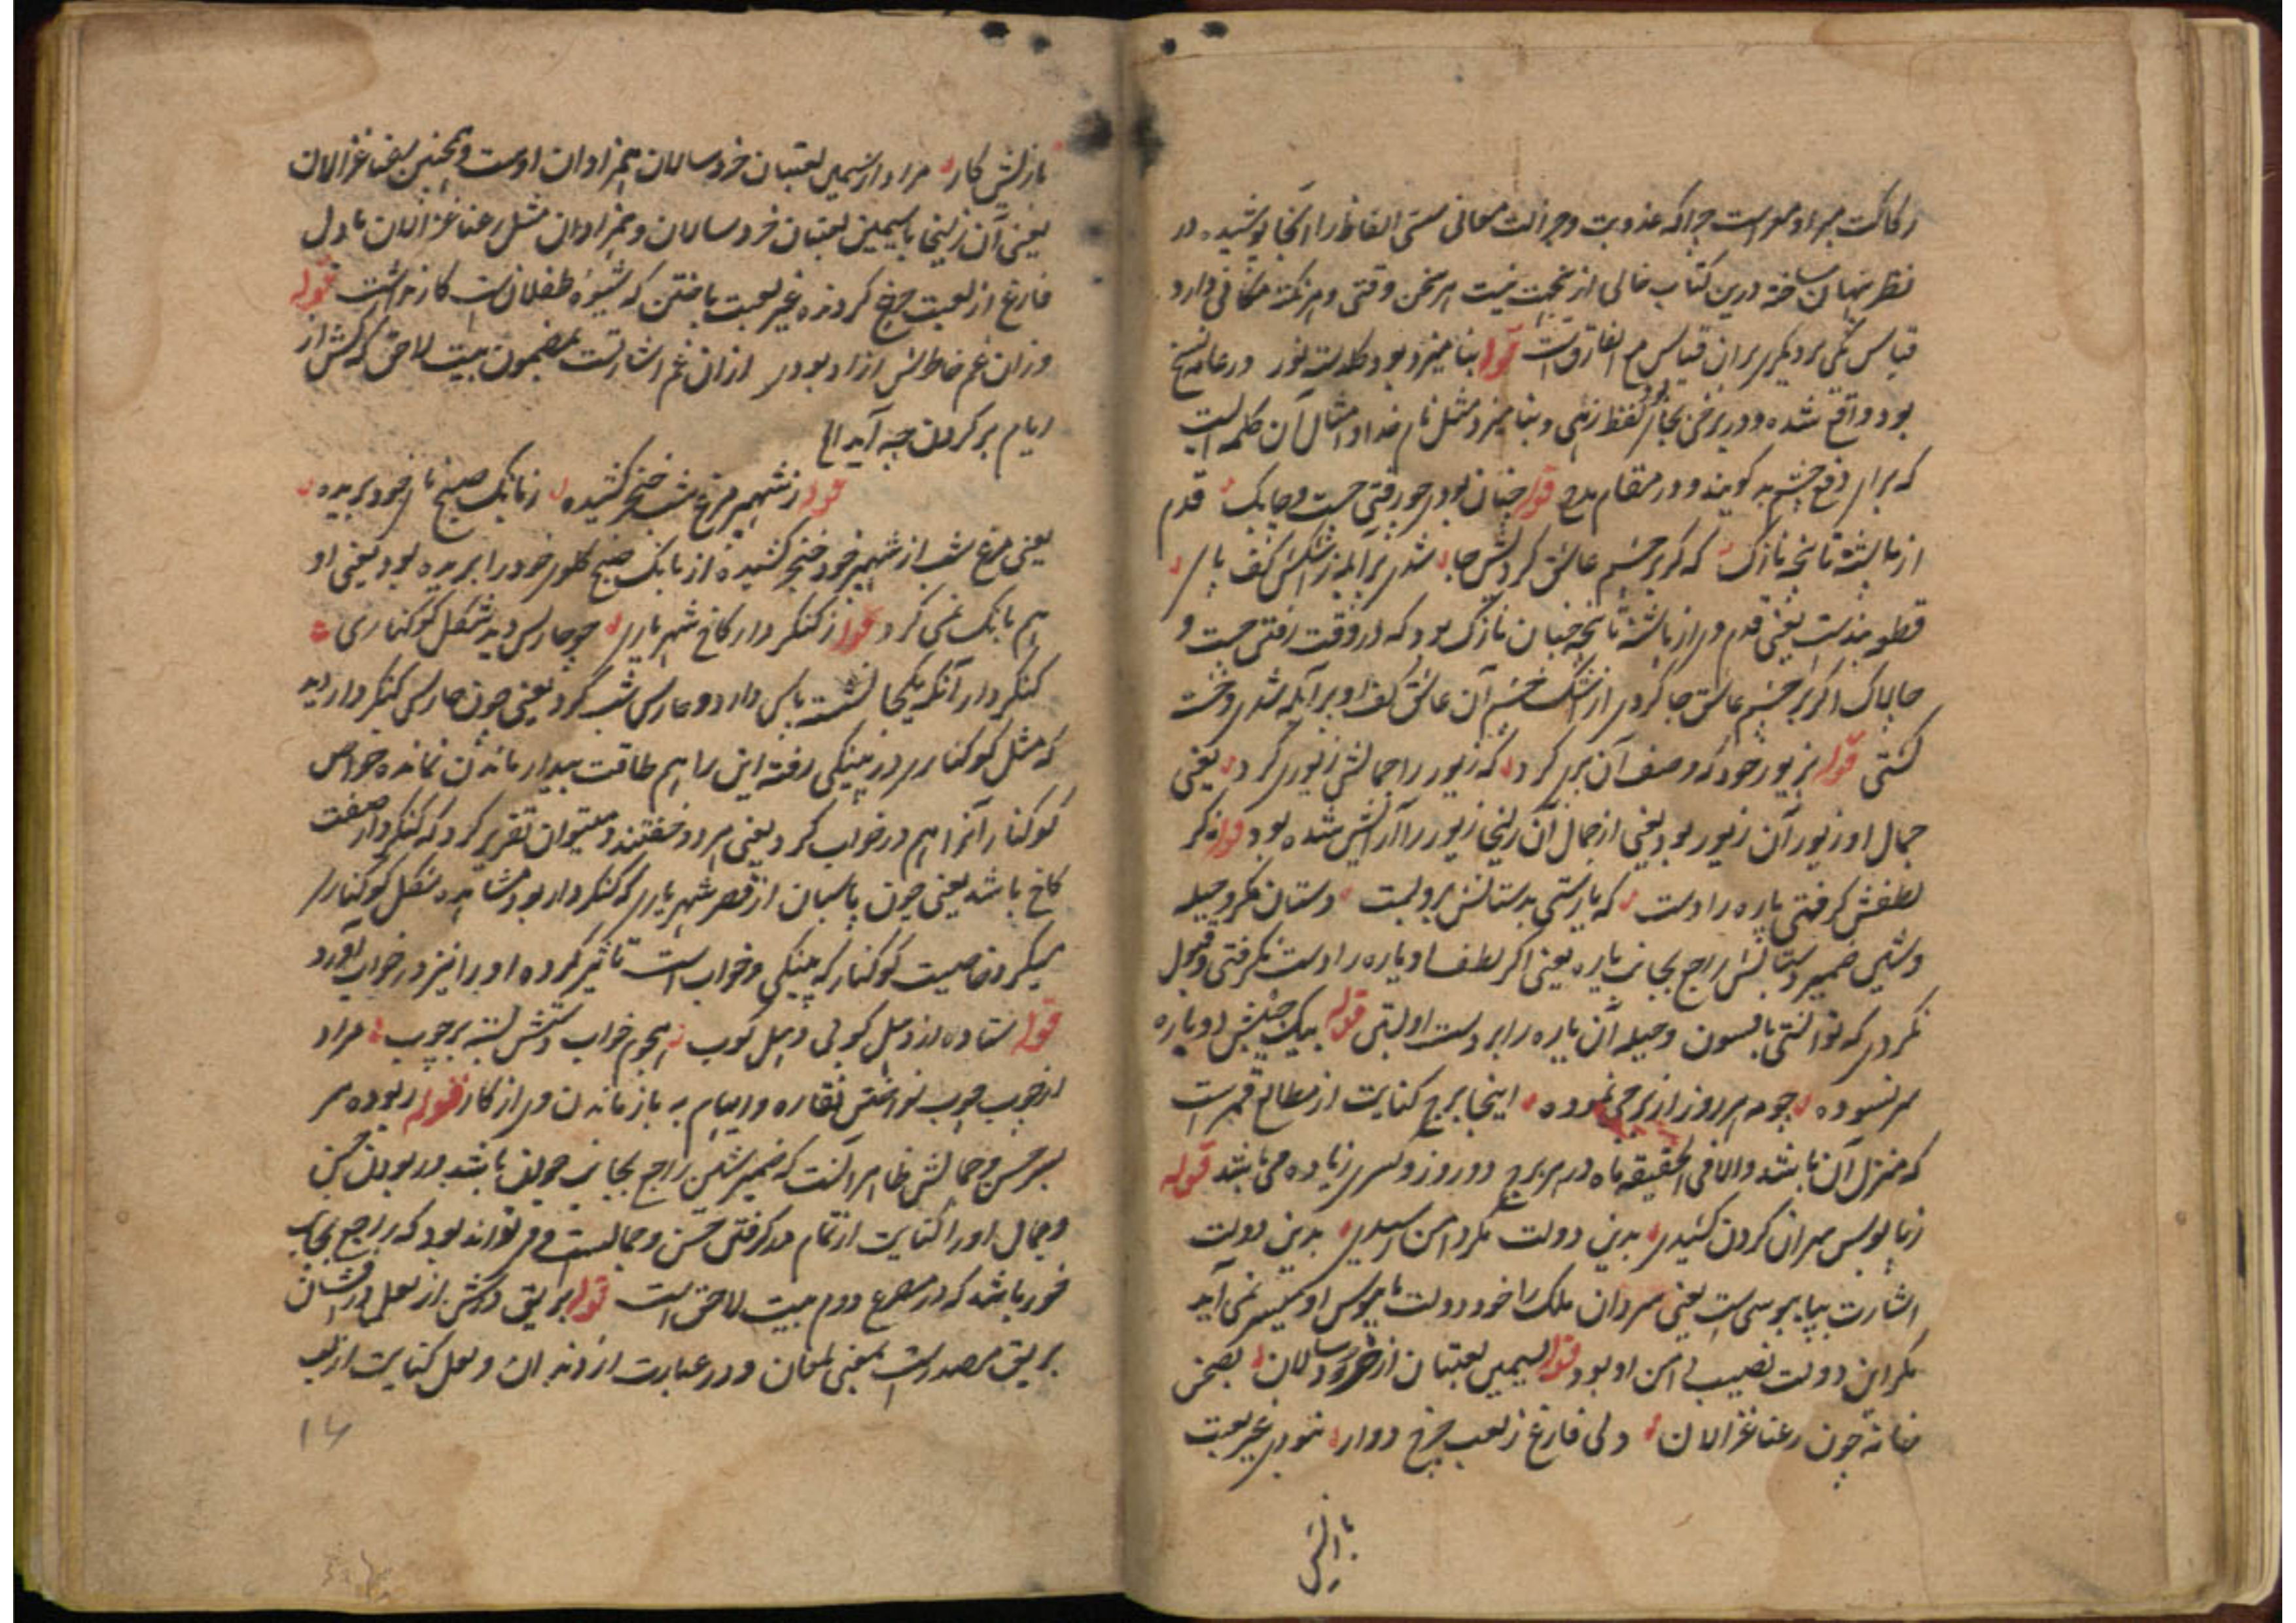 رکاکت مبرا و معراست چرا که عذوبت و جزالت معانی سستی الفاظ را آنجا پوشیده در
نظر نهان ساخته درین کتاب خالی از نیست هر سخن وقتی و هر نکته مکانی دارد
قیاس یکی بر دیگری بران قیاس مع الفارق است قوله بنامیزد بود گلدسته نور در عامه نسخ
بود واقع شده و در برخی بجای او لفظ زهی و بنامیزد مثل نام خدا و امثال آن کلمه ایست
که برای دفع چشم بد گویند و در مقام مدح قوله چنان بودی چو رفتی چست و چابک قدم
از پاشنه تا پنجه نازک که گر بر چشم عاشق کردیش جا شدی پر آبله ز اشکش کف پای
قدم وی از پاشنه تا پنجه چنان نازک بود که در وقت رفتن چست و
چالاک اگر بر چشم عاشق جا کردی از اشک چشم آن عاشق کف او پر آبله شدی و
گشتی قوله بزیور خود که وصف آن پری کرد که زیور را جمالش زیوری کرد یعنی
جمال او زیور آن زیور بود یعنی از جمال آن زلیخا زیور را آرایش شده بود قوله گر
لطفش گرفتی یاره را دست که یارستی بدستانش برو بست دستان مکر و حیله
وشین ضمیر دستانش راجع بجانب یاره یعنی اگر لطف او یاره را دست نگرفتی و قبول
نکردی که توانستی بافسون و حیله آن یاره را بر دست او بستی قوله بیک جنبش دوباره
چو مه هر روز از برجی نموده اینجا برج کنایت از مطالع قمرست
که منزل آن باشد والا فی الحقیقه ماه در هر برج دو روز و کسری زیاده می باشد قوله
ز پابوس سران گردن کشیدی بدین دولت مگر دامن رسیدی بدین دولت
اشارت بپابوسی است یعنی سرداران ملک را خود دولت پابوس او میسر نمی آید
مگر این دولت نصیب دامن او بود قوله بسیمین لعبتان از خردسالان بصحن
خانه چون رعنا غزالان دلی فارغ ز لعب چرخ دوار نبودی غیر لعبت
بازیش
بازیش کار مراد از سیمین لعبتان خردسالان همزادان اوست و همچنین رعنا غزالان
یعنی آن زلیخا با سیمین لعبتان خردسالان و همزادان مثل رعنا غزالان با دل
فارغ از لعبت چرخ گردنده غیر لعبت باختن که شیوه طفلانست کار نداشت قوله
وزان غم خاطرش آزاد بودی ازان غم اشارتست بمضمون بیت لاحق که کش از
ایام بر گردن چه آید الخ
قوله ز شهپر مرغ شب خنجر کشیده ز بانگ صبح نای خود بریده
یعنی مرغ شب از شهپر خود خنجر کشیده از بانگ صبح گلوی خود را بریده بود یعنی او
هم بانگ نمی کرد قوله ز کنگردار کاخ شهریاری چو حارس دید شکل کوکناری
کنگردار آنکه یکجا نشسته پاس دارد و حارس شب گرد یعنی چون حارس کنگردار دید
که مثل کوکناری در پینکی رفته این را هم طاقت بیدار ماندن نمانده خواص
کوکنار آنرا هم در خواب کرد یعنی هر دو خفتند و میتوان تقریر کرد که کنگردار صفت
کاخ باشد یعنی چون پاسبان از قصر شهریاری که کنگردار بود مشاهده شکل کوکناری
میکرد خاصیت کوکنار که پینکی و خواب است تاثیر کرده او را نیز در خواب آورد
قوله ستاده از دهل کوبی دهل کوب هجوم خواب دستش بسته بر چوب مراد
از چوب چوب نواختن نقاره و ایهام به باز ماندن وی از کار قوله ربوده سر
بسر حسن و جمالش ظاهر آنست که ضمیر شین راجع بجانب جوان باشد و ربودن حسن
و جمال او را کنایت از تمام در گرفتن حسن و جمالست و می تواند بود که راجع بجانب
خود باشد که در مصرع دوم بیت لاحق است قوله بریق درش از لعل درفشان
بریق مصدر است بمعنی لمعان و در عبارت از دندان و لعل کنایت از لب
۱۴